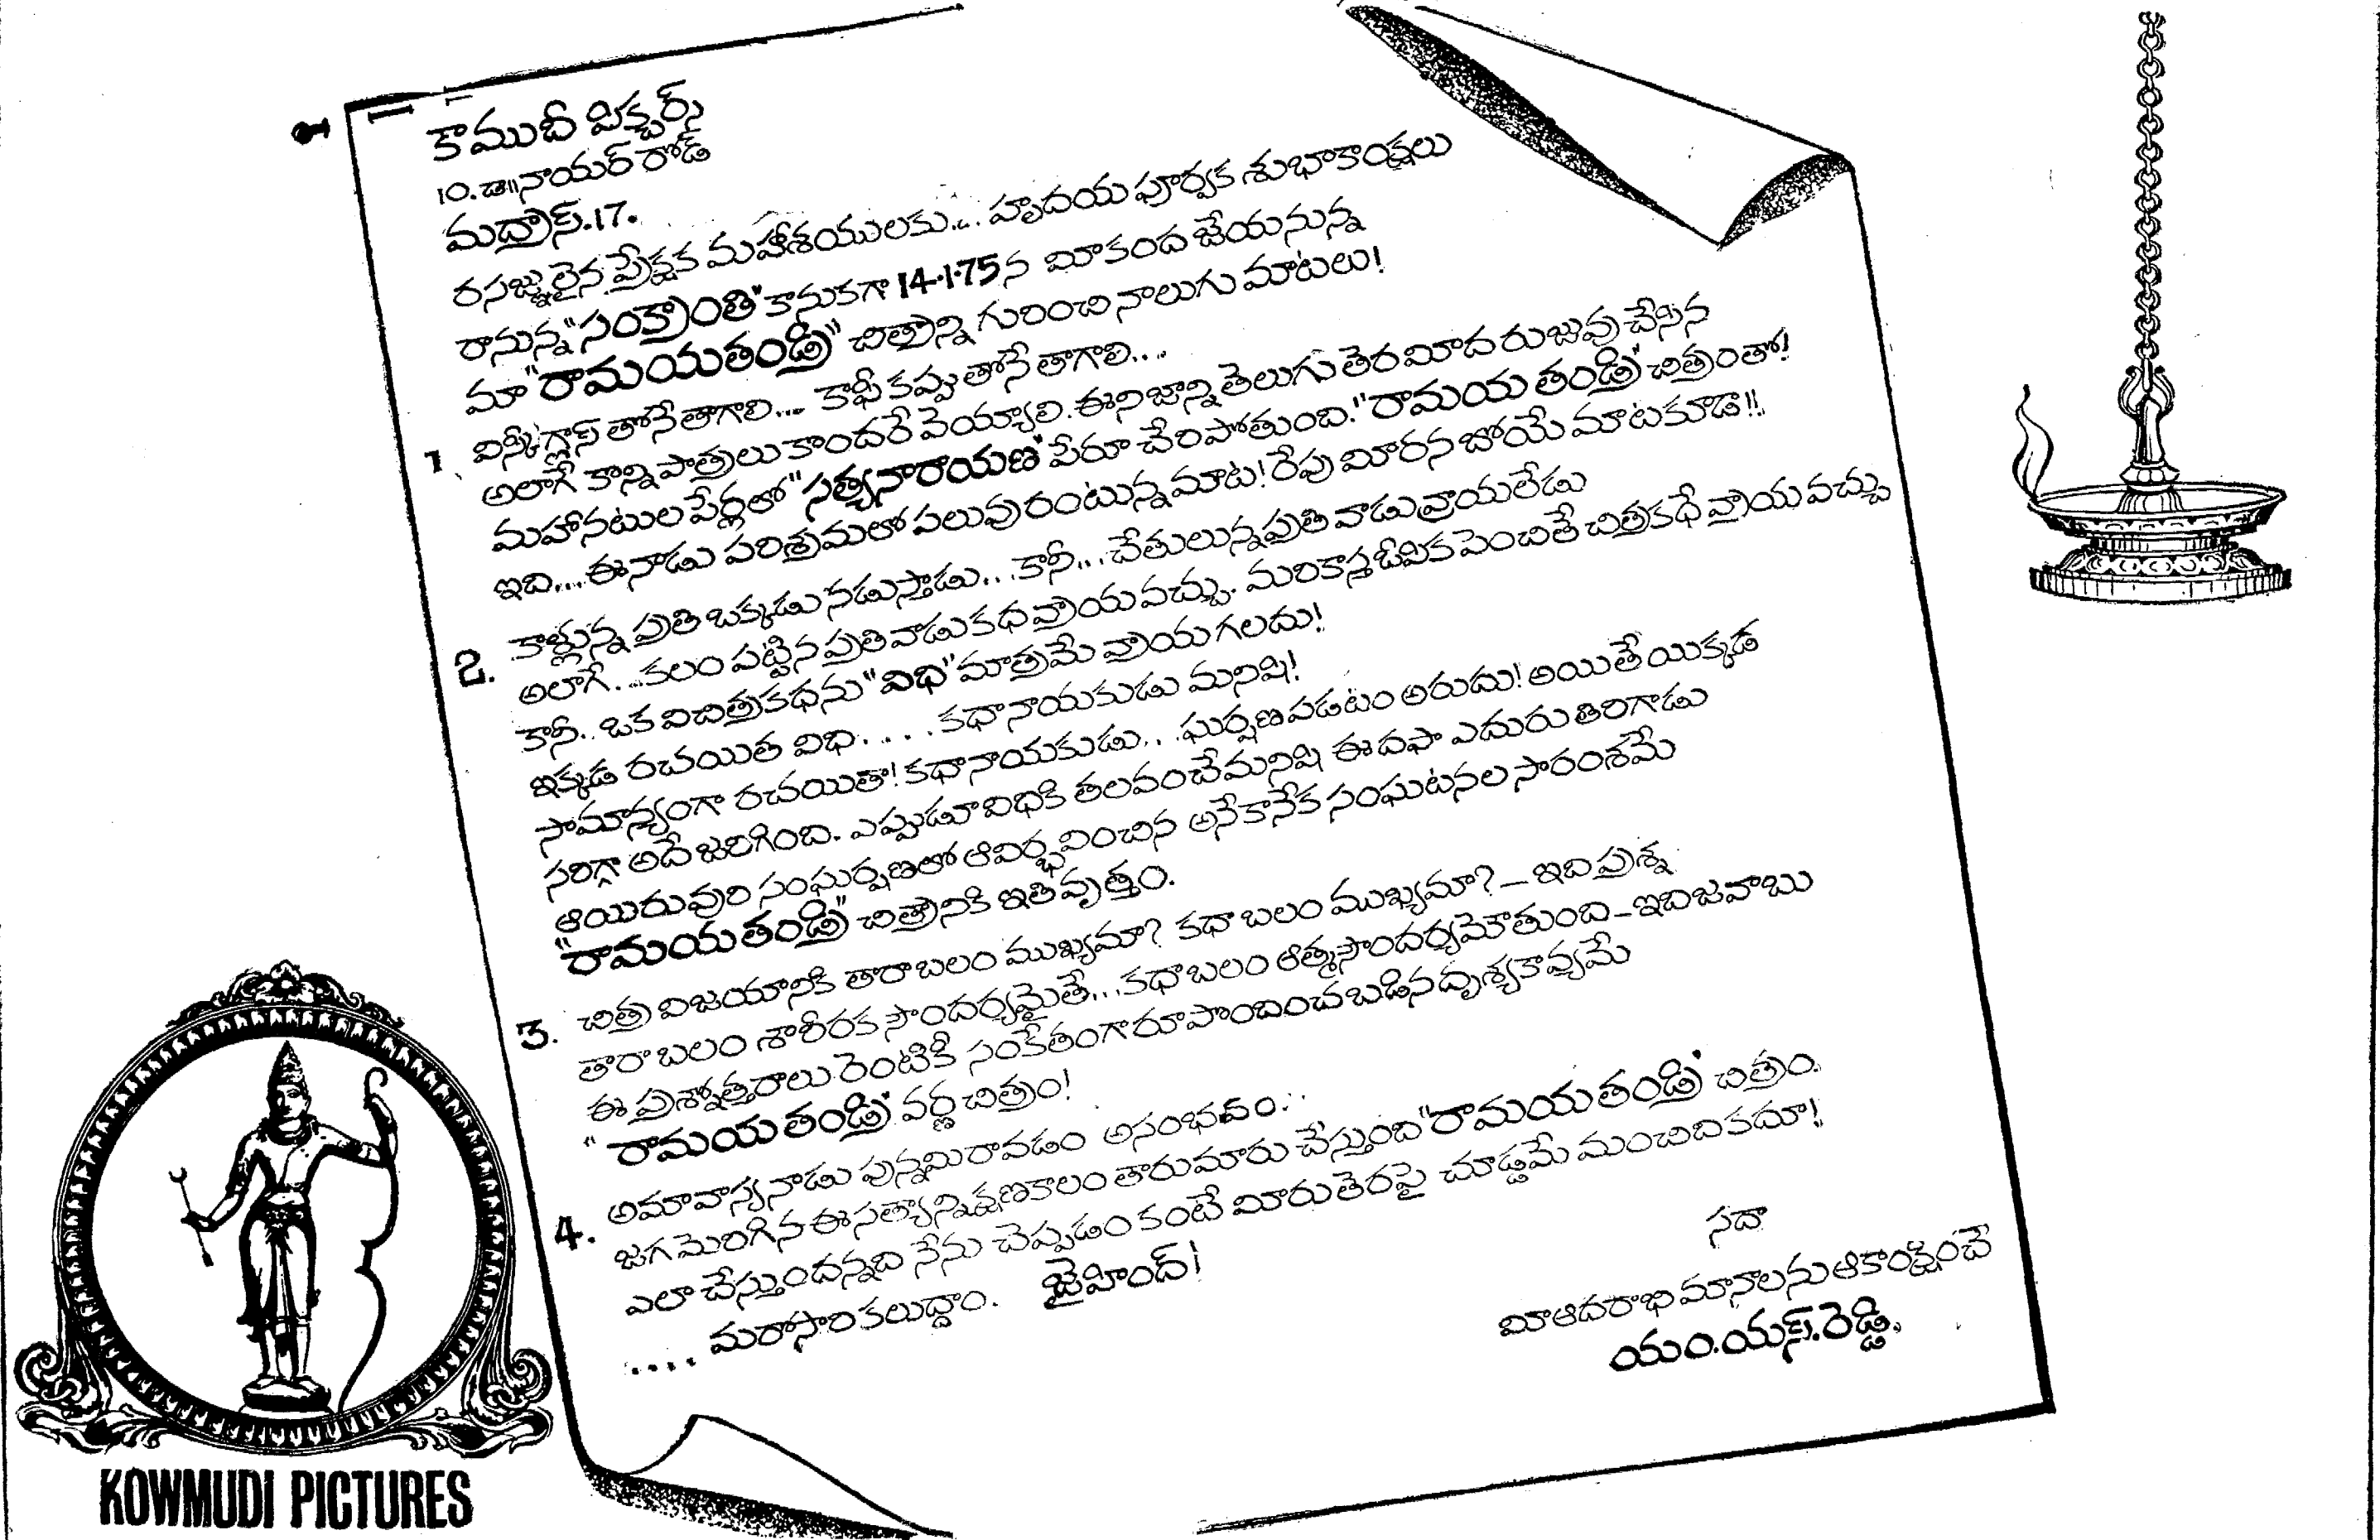 కౌముదీ పిక్చర్స్
10. డా॥నాయర్ రోడ్
మద్రాస్.17.
రసజ్ఞులైన ప్రేక్షక మహాశయులకు... హృదయ పూర్వక శుభాకాంక్షలు
రానున్న "సంక్రాంతి" కానుకగా 14-1-75న మీకంద జేయనున్న
మా "రామయతండ్రి" చిత్రాన్ని గురించి నాలుగు మాటలు!
1. విస్కీ గ్లాస్ తోనే తాగాలి... కాఫీ కప్పుతోనే తాగాలి...
అలాగే కొన్ని పాత్రలు కొందరే వెయ్యాలి. ఈ నిజాన్ని తెలుగు తెరమీద రుజువు చేసిన
మహానటుల పేర్లలో "సత్యనారాయణ" పేరూ చేరిపోతుంది. "రామయ తండ్రి" చిత్రంతో!
ఇది.... ఈనాడు పరిశ్రమలో పలువురంటున్న మాట! రేపు మీరన బోయే మాట కూడా!!
2. కాళ్లున్న ప్రతి ఒక్కడు నడుస్తాడు... కానీ... చేతులున్న ప్రతి వాడు వ్రాయలేడు
అలాగే... కలం పట్టిన ప్రతివాడు కధ వ్రాయవచ్చు. మరికాస్త ఓపిక పెంచితే చిత్రకధే వ్రాయ వచ్చు
కానీ.. ఒక విచిత్రకధను "విధి" మాత్రమే వ్రాయ గలదు!
ఇక్కడ రచయిత విధి..... కధానాయకుడు మనిషి!
సామాన్యంగా రచయితా! కధానాయకుడు.. ఘర్షణ పడటం అరుదు! అయితే యిక్కడ
సరిగ్గా అదే జరిగింది. ఎప్పుడూ విధికి తలవంచే మనిషి ఈ దఫా ఎదురు తిరిగాడు
ఆయిరువురి సంఘర్షణలో ఆవిర్భవించిన అనేకానేక సంఘటనల సారంశమే
"రామయతండ్రి" చిత్రానికి ఇతివృత్తం.
3. చిత్ర విజయానికి తారాబలం ముఖ్యమా? కధాబలం ముఖ్యమా? - ఇది ప్రశ్న
తారా బలం శారీరక సౌందర్యమైతే... కధాబలం ఆత్మసౌందర్యమౌతుంది - ఇది జవాబు
ఈ ప్రశ్నోత్తరాలు రెంటికీ సంకేతంగా రూపొందించబడిన దృశ్యకావ్యమే
"రామయతండ్రి" వర్ణచిత్రం!
4. అమావాస్యనాడు పున్నమి రావడం అసంభవం..
జగమెరిగిన ఈ సత్యాన్ని క్షణకాలం తారుమారు చేస్తుంది "రామయతండ్రి" చిత్రం.
ఎలా చేస్తుందన్నది నేను చెప్పడం కంటే మీరు తెరపై చూడ్డమే మంచిది కదూ!
.... మరోసారి కలుద్దాం. జైహింద్!
సదా
మీ ఆదరాభిమానాలను ఆకాంక్షించే
యం.యస్.రెడ్డి.
KOWMUDI PICTURES